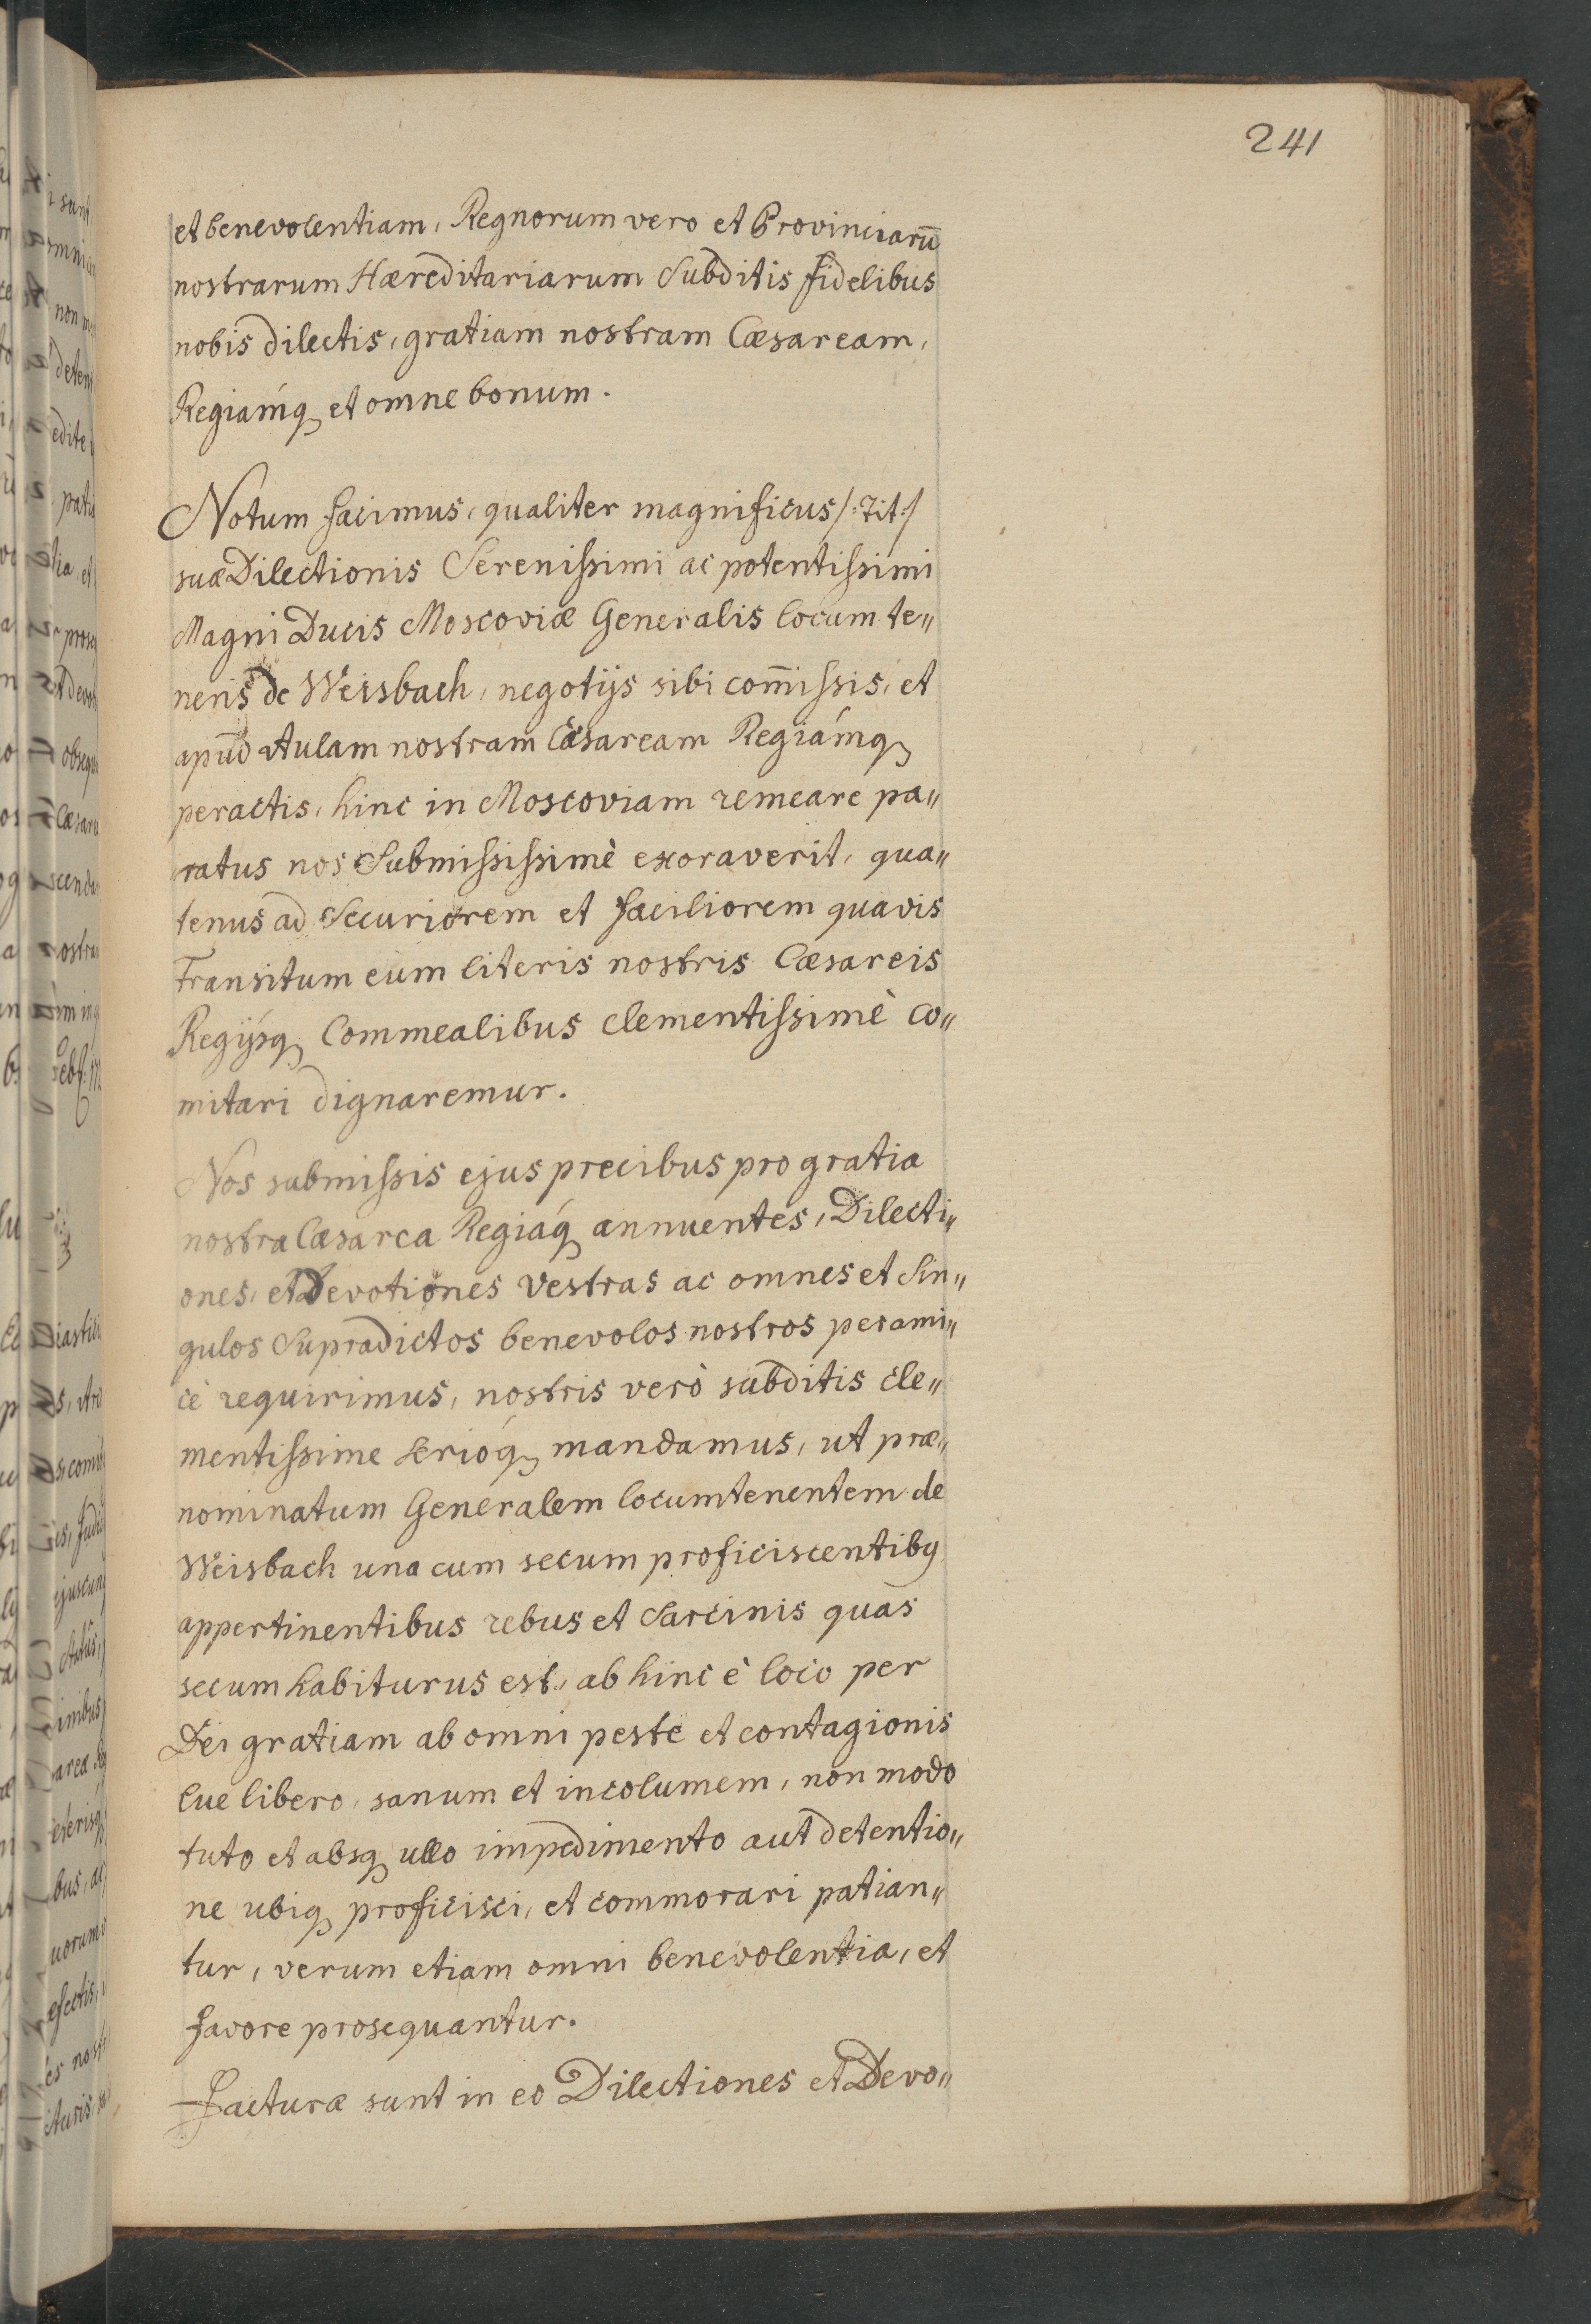 241
et benevolentiam, Regnorum vero et Provinciarū
nostrarum Hæreditariarum Subditis fidelibus
nobis dilectis, gratiam nostram Cæsaream,
Regiámq et omne bonum.
Notum facimus, qualiter magnificus /:Tit:/
suæ Dilectionis Serenissimi ac potentissimi
Magni Ducis Moscoviæ Generalis locum te„
nens de Weisbach, negotijs sibi com̄issis, et
apud Aulam nostram Cæsaream Regiámq
peractis, hinc in Moscoviam remeare pa„
ratus nos Submississimè exoraverit, qua„
tenus ad Securiorem et faciliorem quavis
Transitum eum literis nostris Cæsareis
Regijsq Commealibus clementissimè co„
mitari dignaremur.
Nos submissis ejus precibus pro gratia
nostra Cæsarea Regiáq annuentes, Dilecti„
ones, et Devotiones Vestras ac omnes et Sin„
gulos Supradictos benevolos nostros perami„
cè requirimus, nostris verò subditis cle„
mentissime serióq mandamus, ut præ„
nominatum Generalem locumtenentem de
Weisbach una cum secum proficiscentibꝯ
appertinentibus rebus et Sarcinis quas
secum habiturus est, ab hinc è loco per
Dei gratiam ab omni peste et contagionis
lue libero, sanum et incolumem, non modo
tuto et absq ullo impedimento aut detentio„
ne ubiq proficisci, et commorari patian„
tur, verum etiam omni benevolentia, et
favore prosequantur.
Facturæ sunt in eo Dilectiones et Devo„